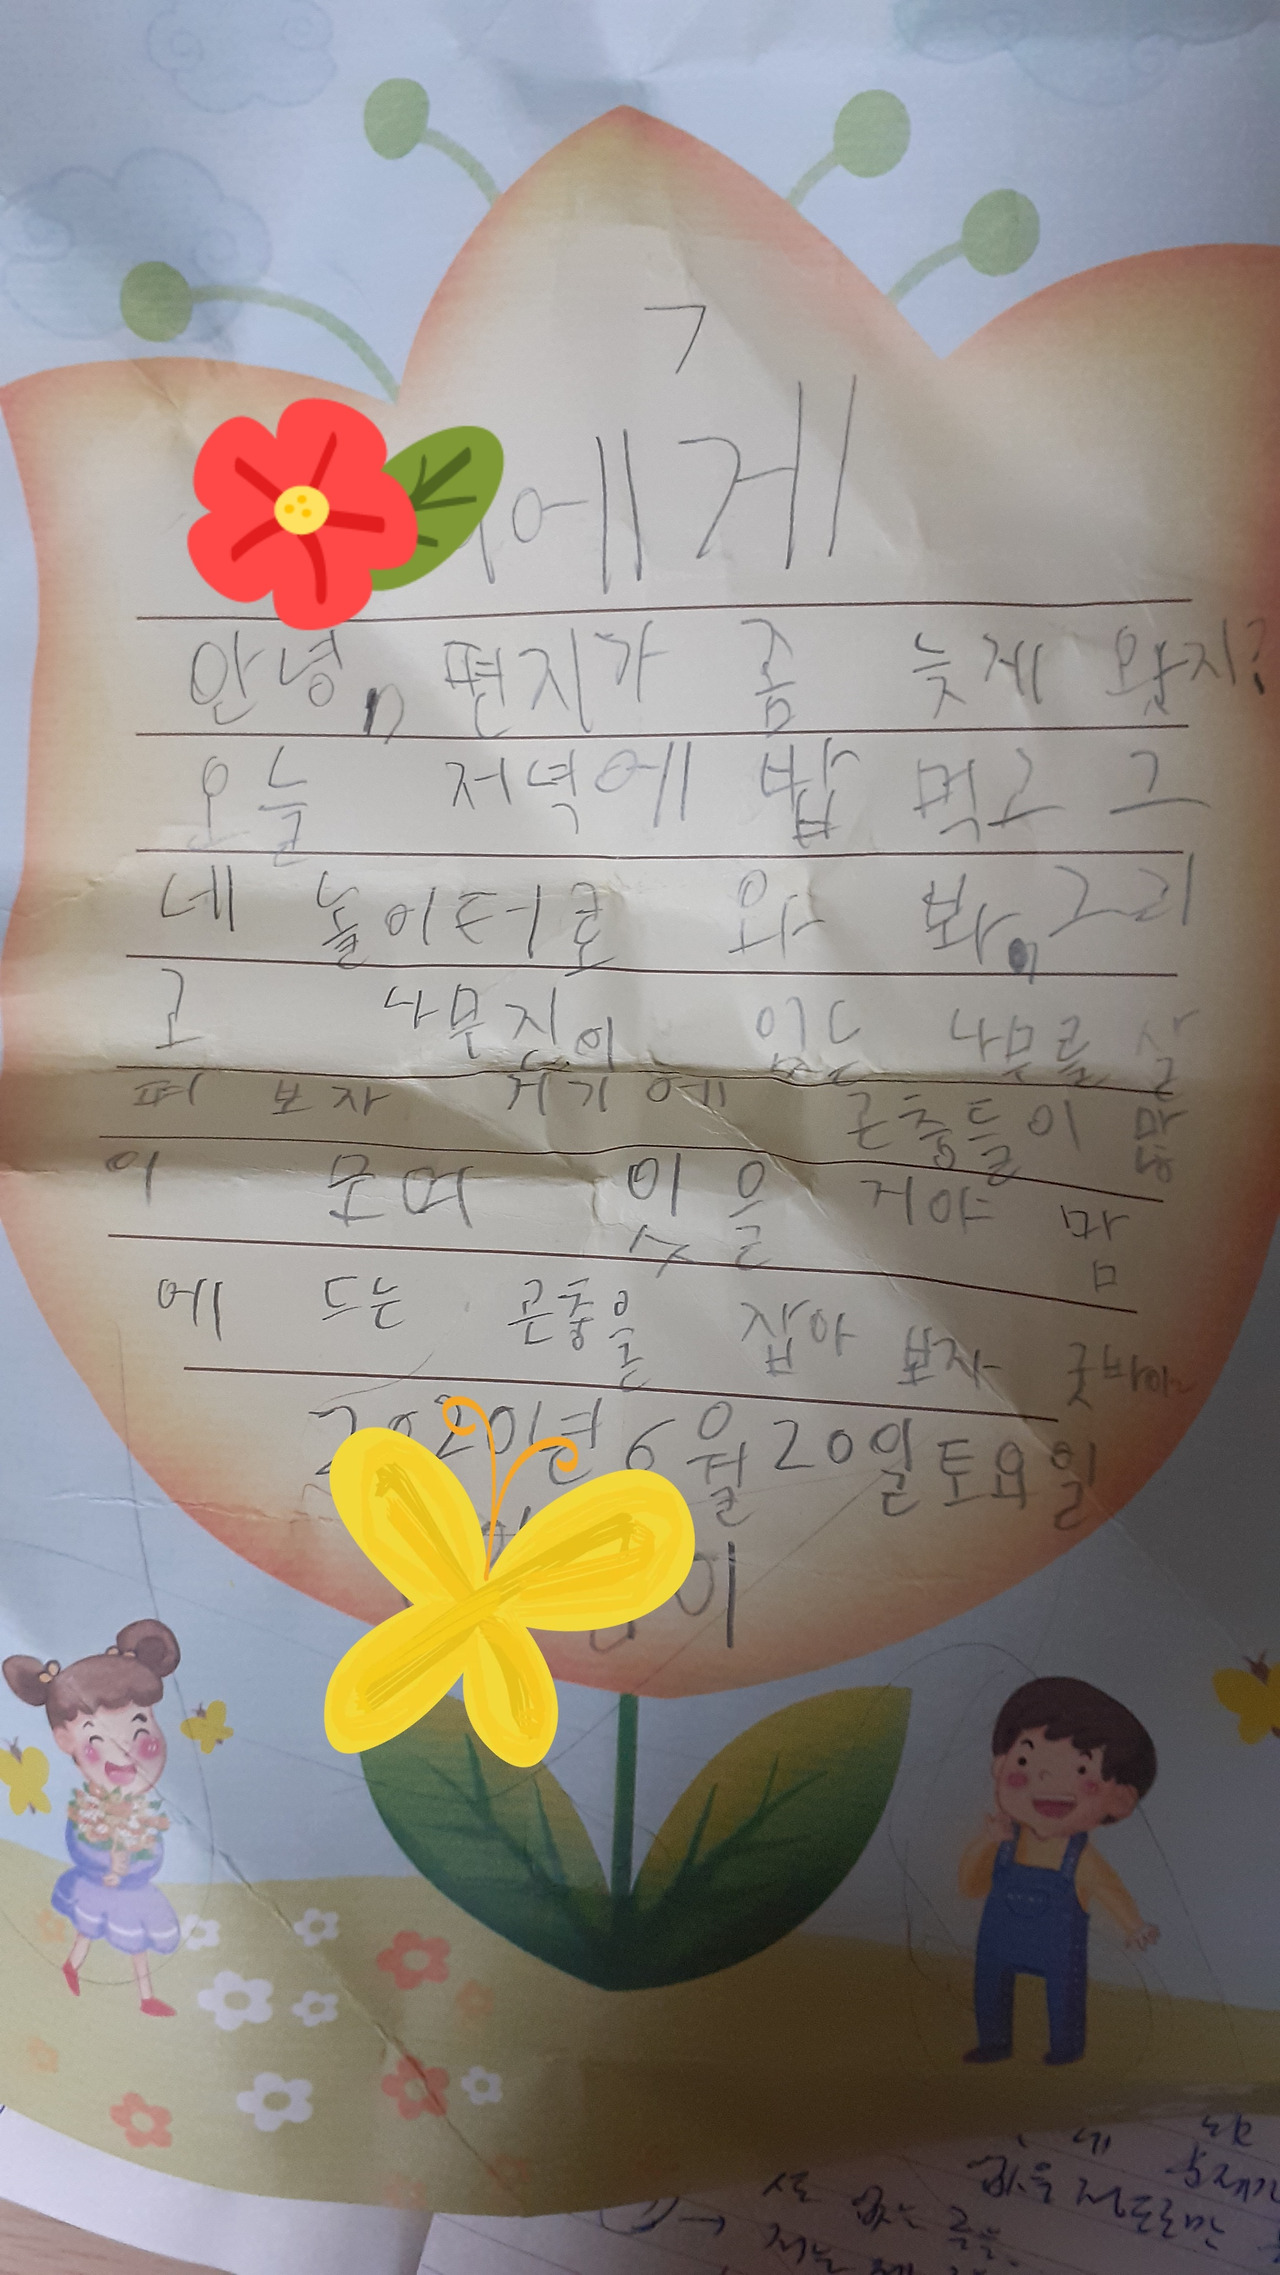 에게
안녕, 편지가 좀 늦게 왔지?
오늘 저녁에 밥 먹고 그
네 놀이터로 와 봐, 그리
고 나무진이 있는 나무를 살
펴 보자 거기에 곤충들이 많
이 모여 잇을 거야 맘
에 드는 곤충을 잡아 보자 굿바이~
2020년 6월 20일 토요일
이